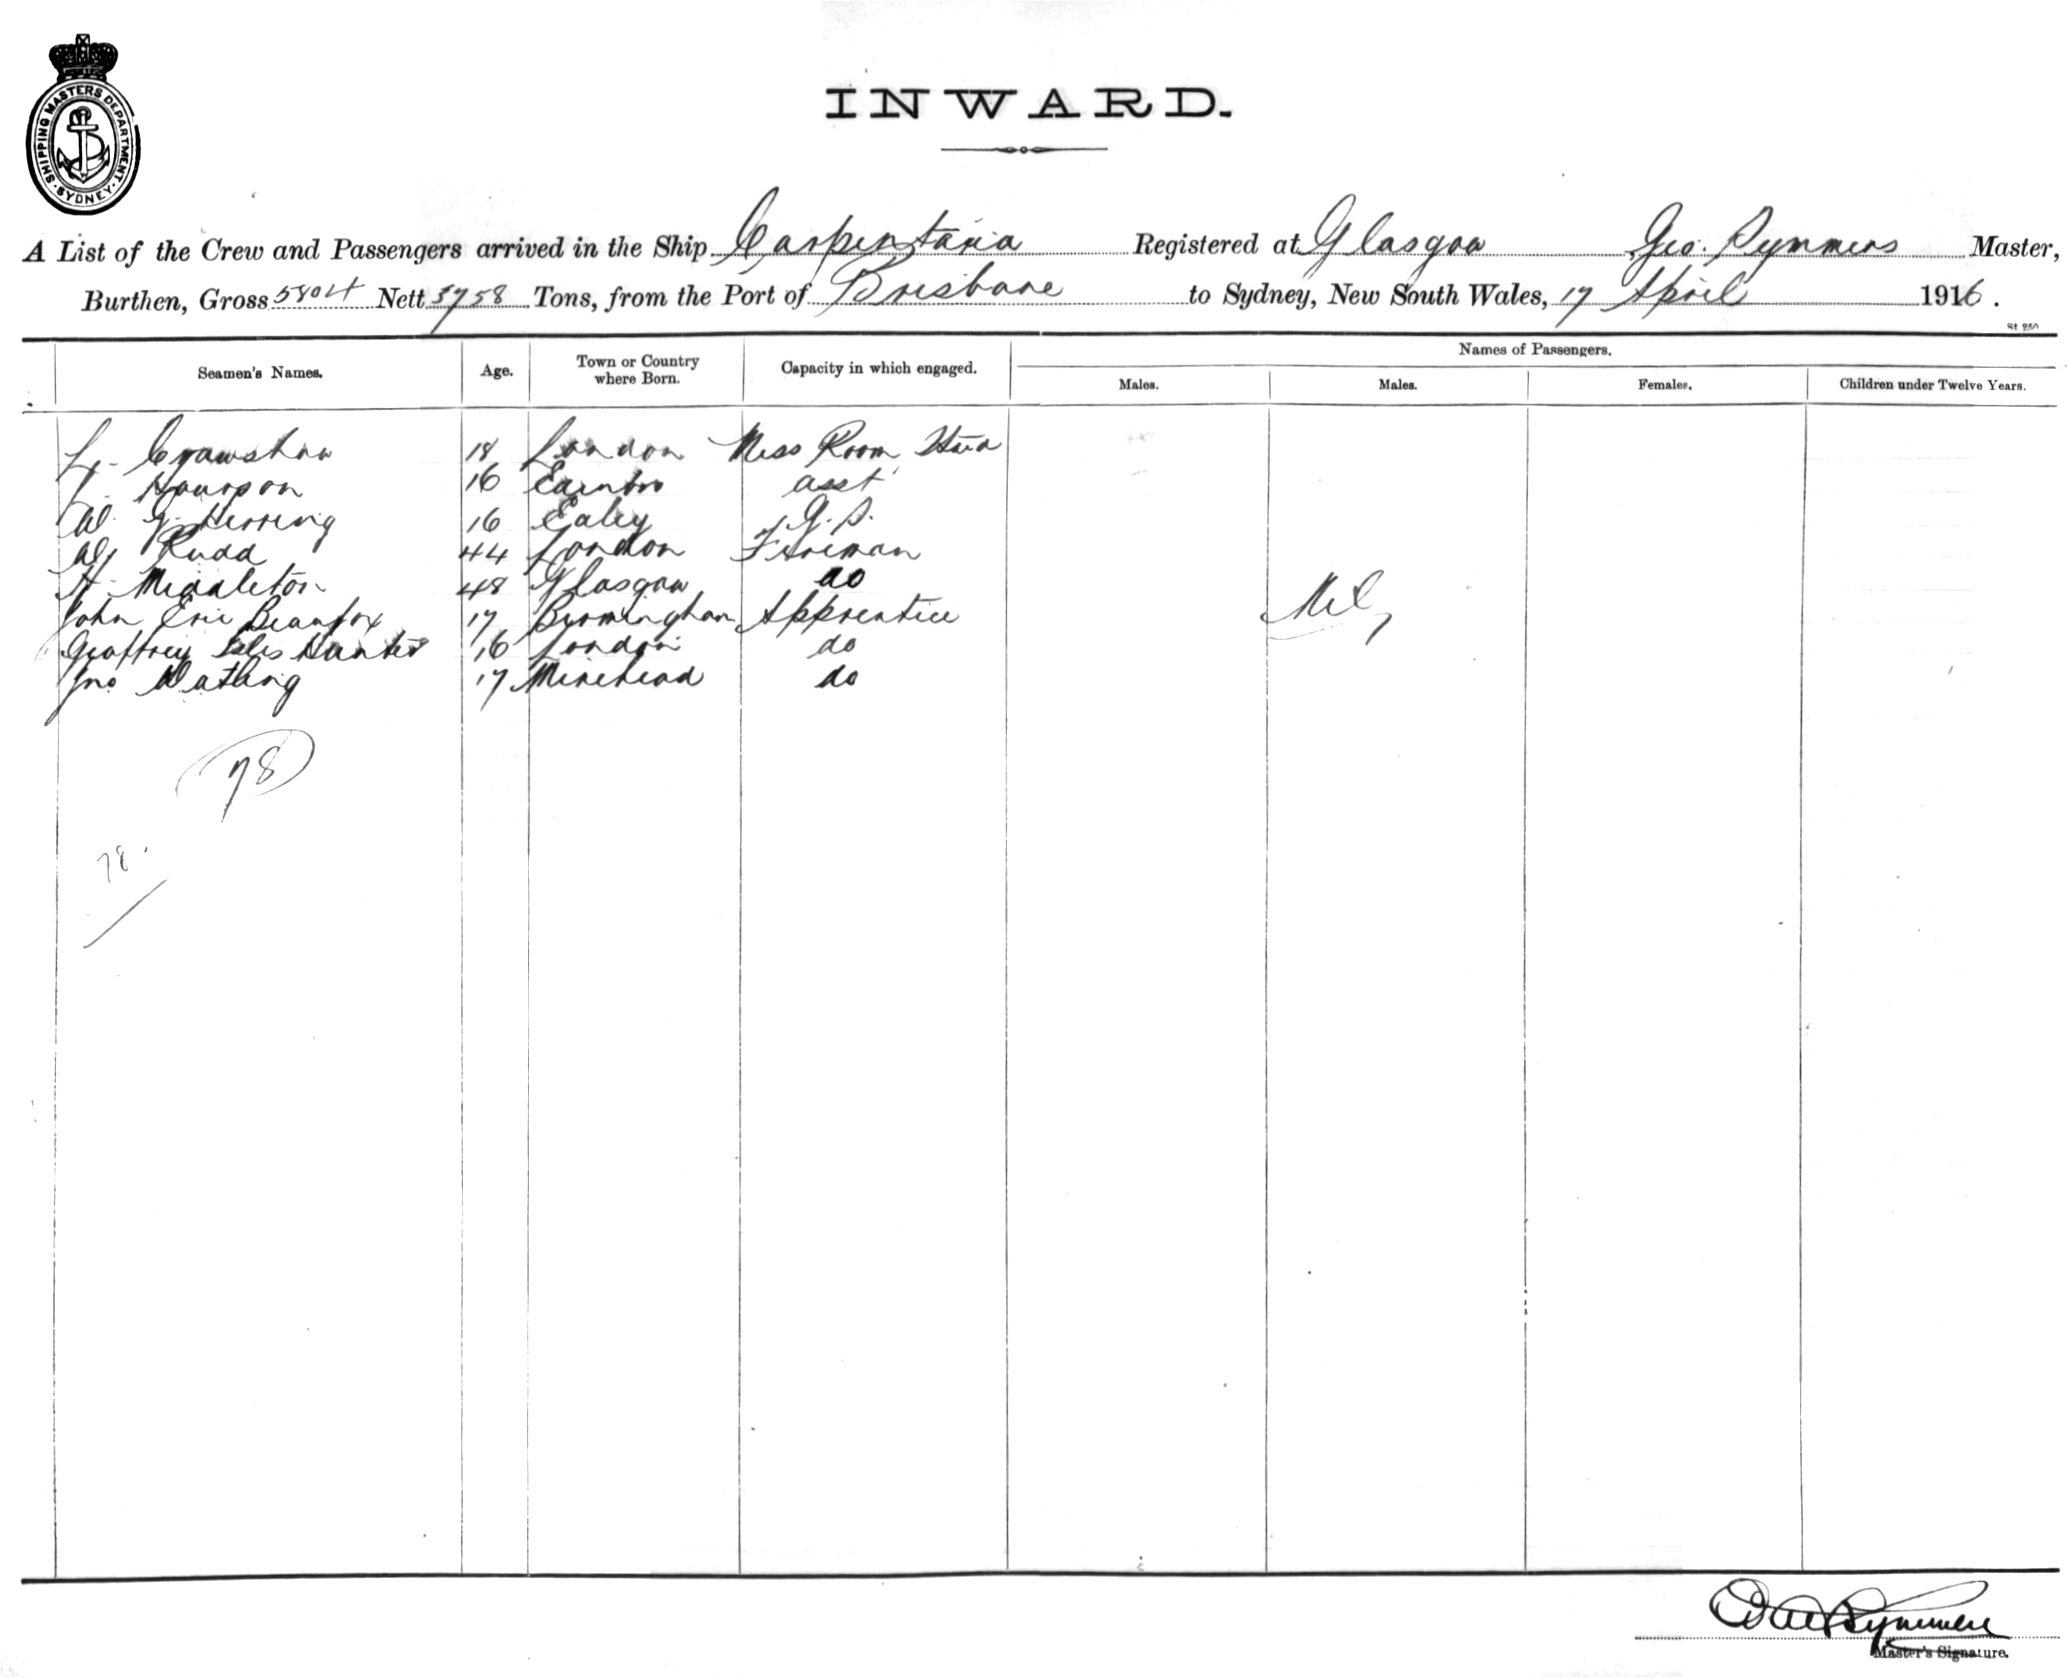 SHIPPING MASTERS DEPARTMENT. SYDNEY.
INWARD.
A List of the Crew and Passengers arrived in the Ship Carpentaria Registered at Glasgow Geo. Master,
Burthen, Gross 5804 Nett 3758 Tons, from the Port of Brisbane to Sydney, New South Wales, 17 April 1916.
St 250
Seamen's Names. Age. Town or Country where Born. Capacity in which engaged. Names of Passengers.
Males. Males. Females. Children under Twelve Years.
Crawshaw 18 London Mess Room
16 asst
W. G. Herring 16 G.S.
W Rudd 44 London Fireman
H. Middleton 48 Glasgow do
John Eric Beaufox 17 Birmingham Apprentice
Geoffrey Hunter 16 London do
Jno Watling 17 Minehead do
78
78.
Master's Signature.